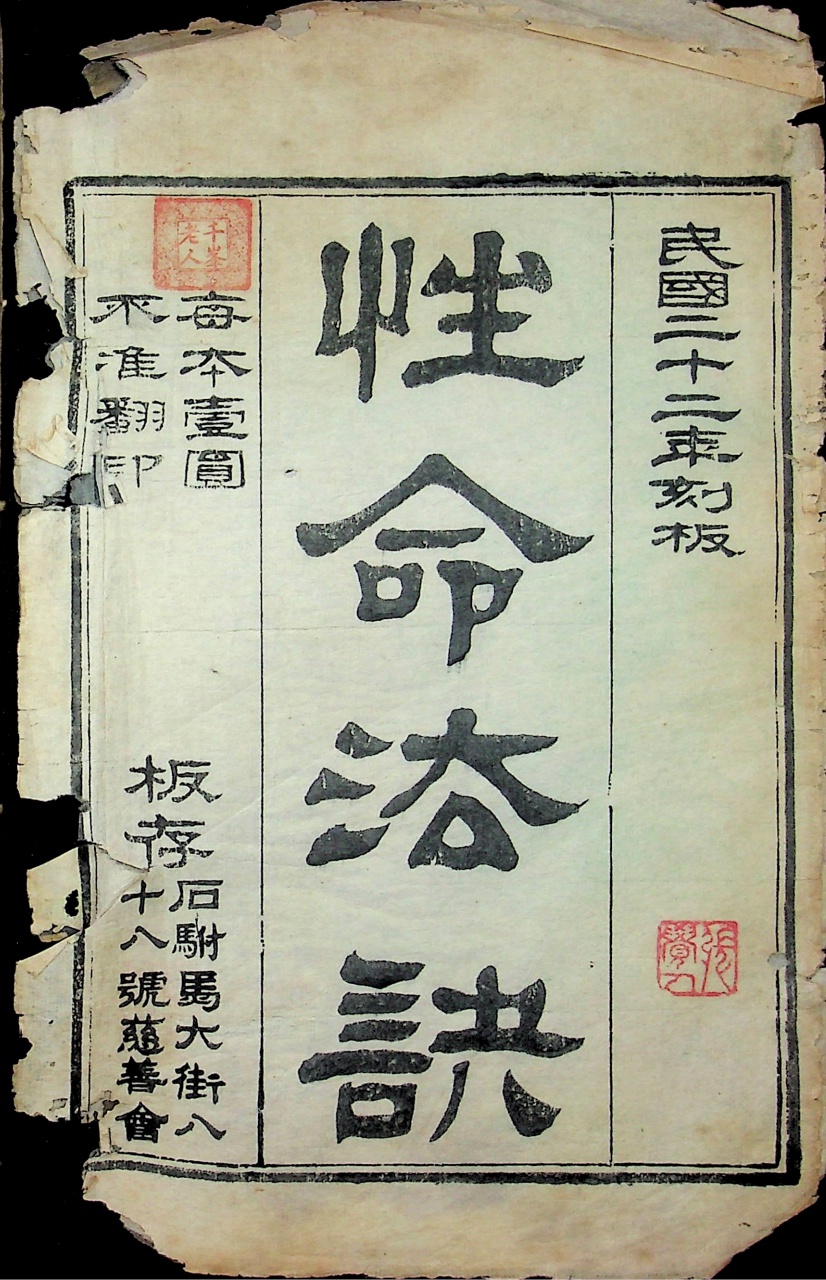 民國二十二年刻板
性命法訣
千峯
老人
每本壹圓
不准翻印
板存
石駙馬大街八
十八號慈善會